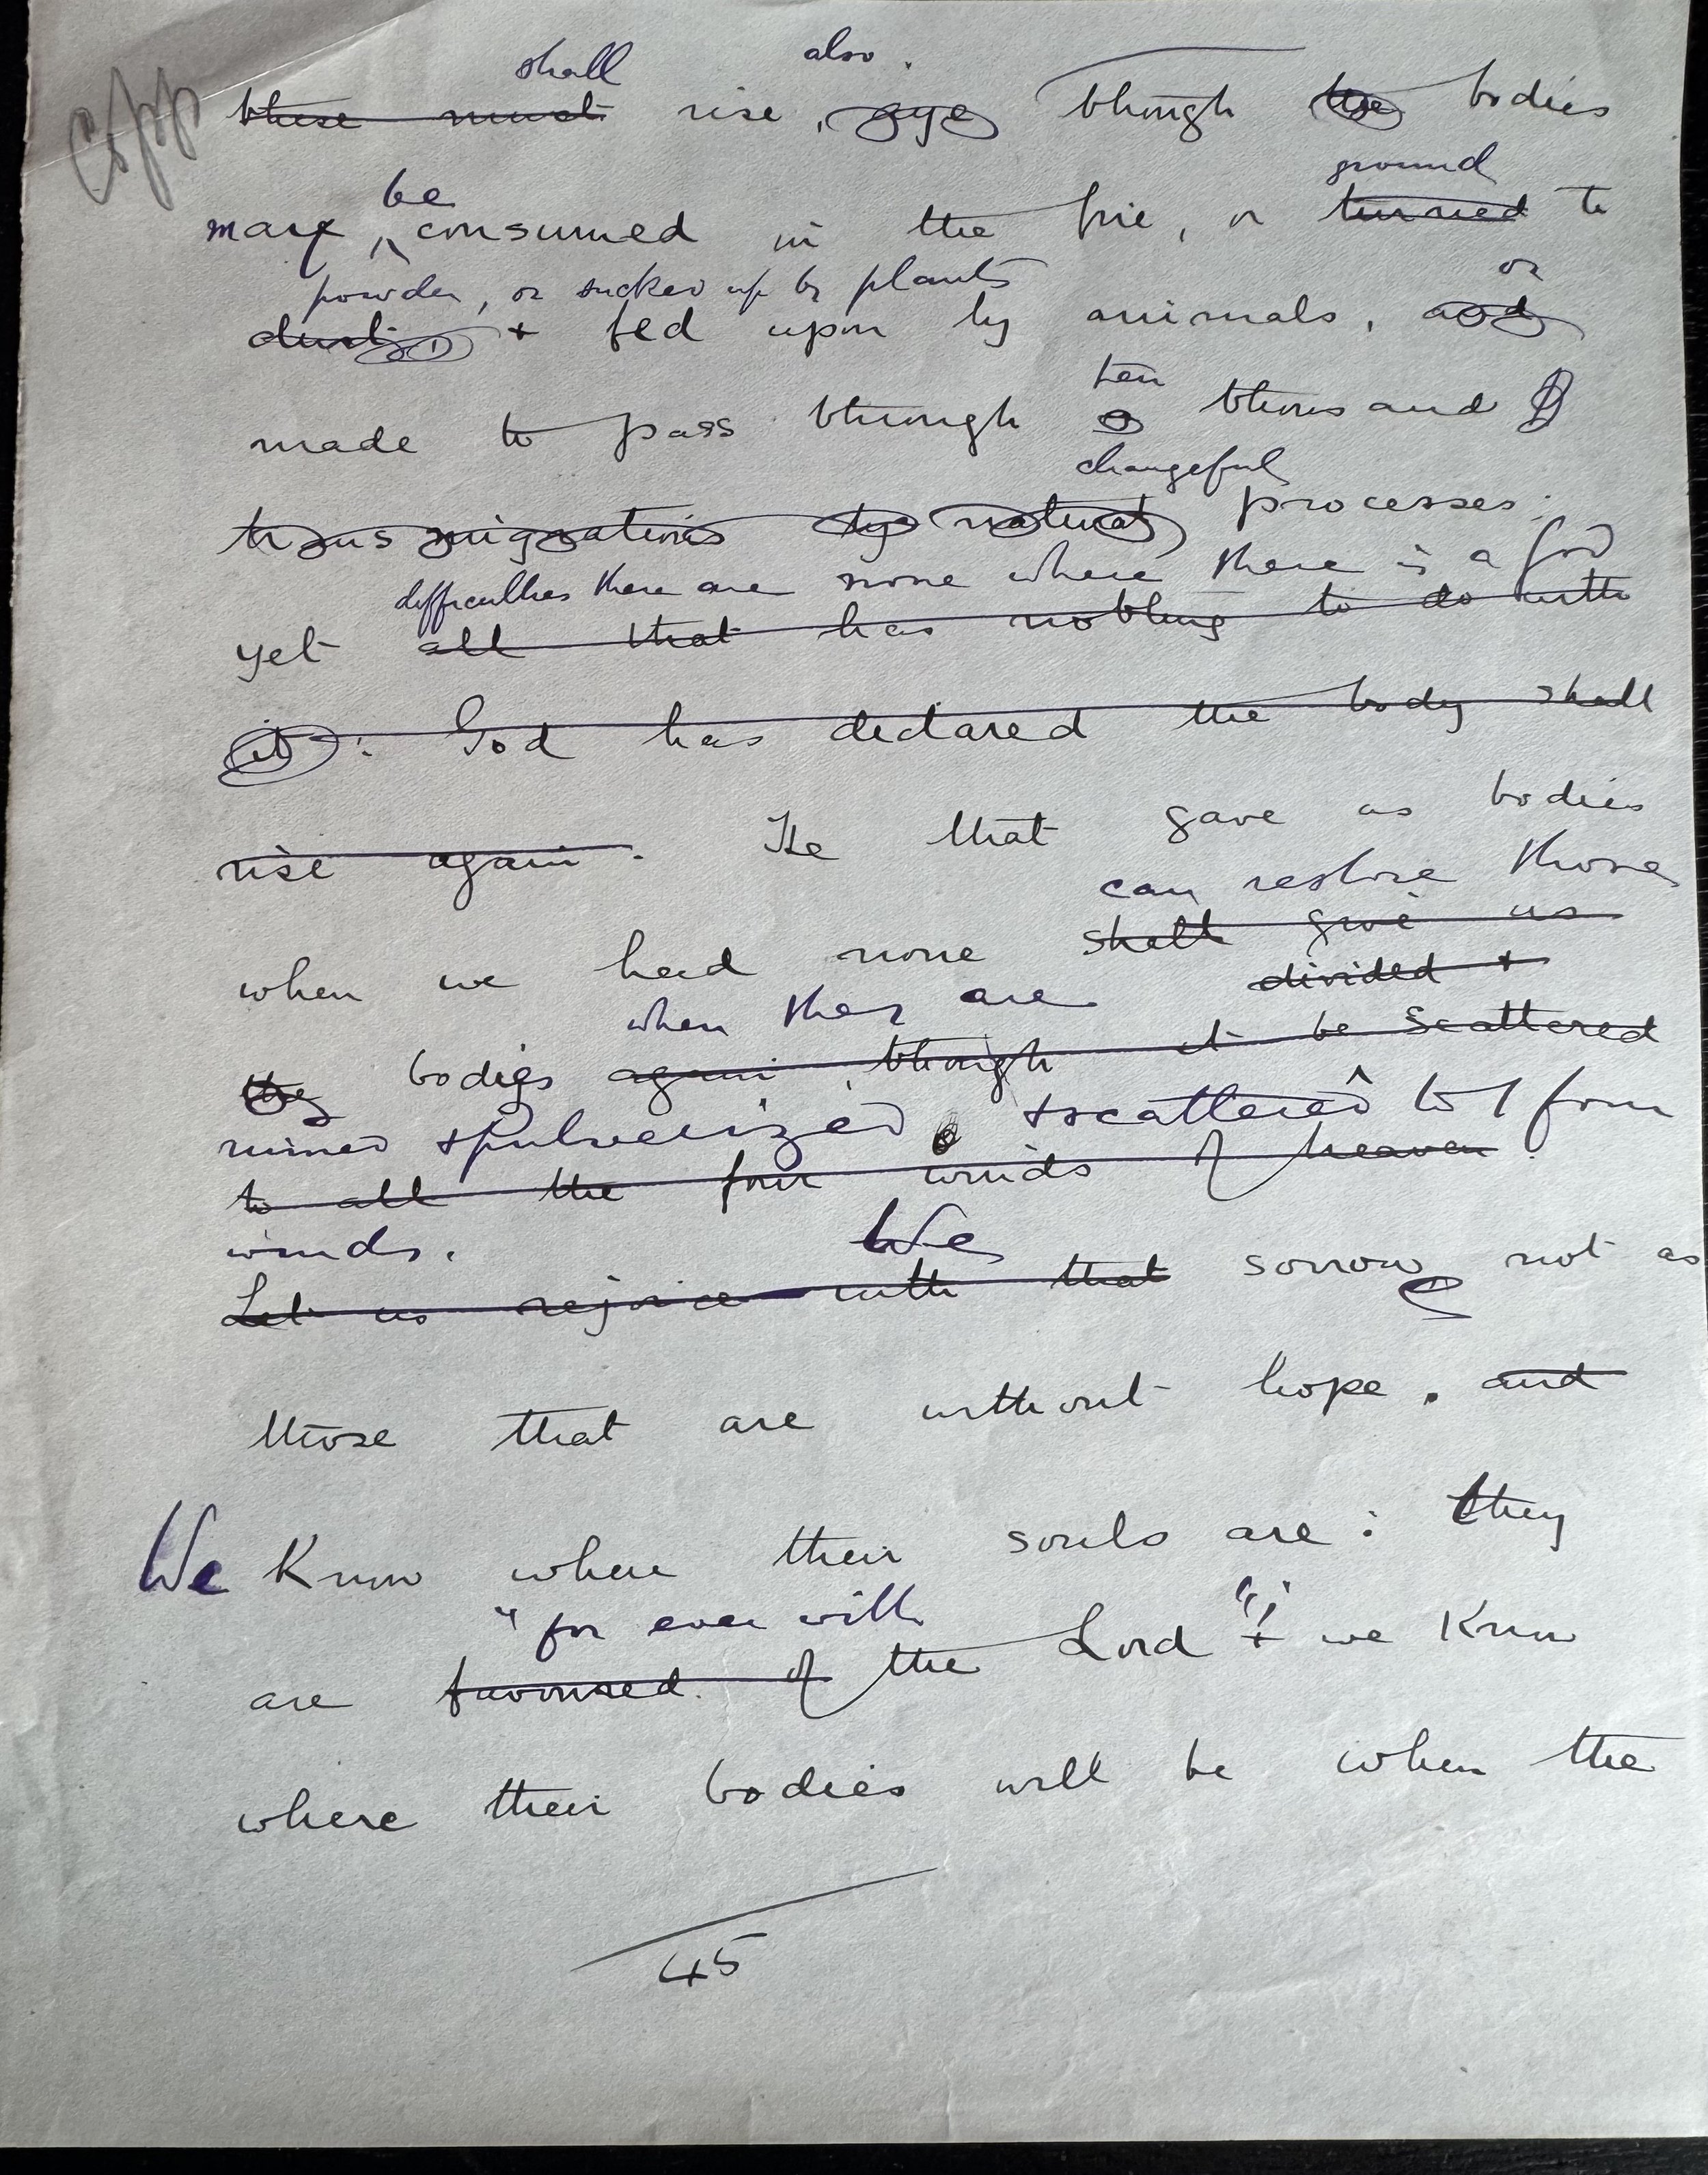 shall also.
these must rise, aye though the bodies
be ground
may consumed in the fire, or turned to
powder, or sucked up by plants or
dust + fed upon by animals, and
ten
made to pass through a thousand
changeful
transmigrations by natural processes:
difficulties there are none where there is a God
yet all that has nothing to do with
it: God has declared the body shall
rise again. He that gave us bodies
can restore those
when we had none shall give us
when they are divided +
bodies again, though it be scattered
ruined + pulverized, + scattered to 4 four
to all the four winds of heaven.
winds. We
Let us rejoice with that sorrow not as
those that are without hope. and
We know where their souls are: they
"for ever with
are favoured of the Lord"; + we know
where their bodies will be when the
45